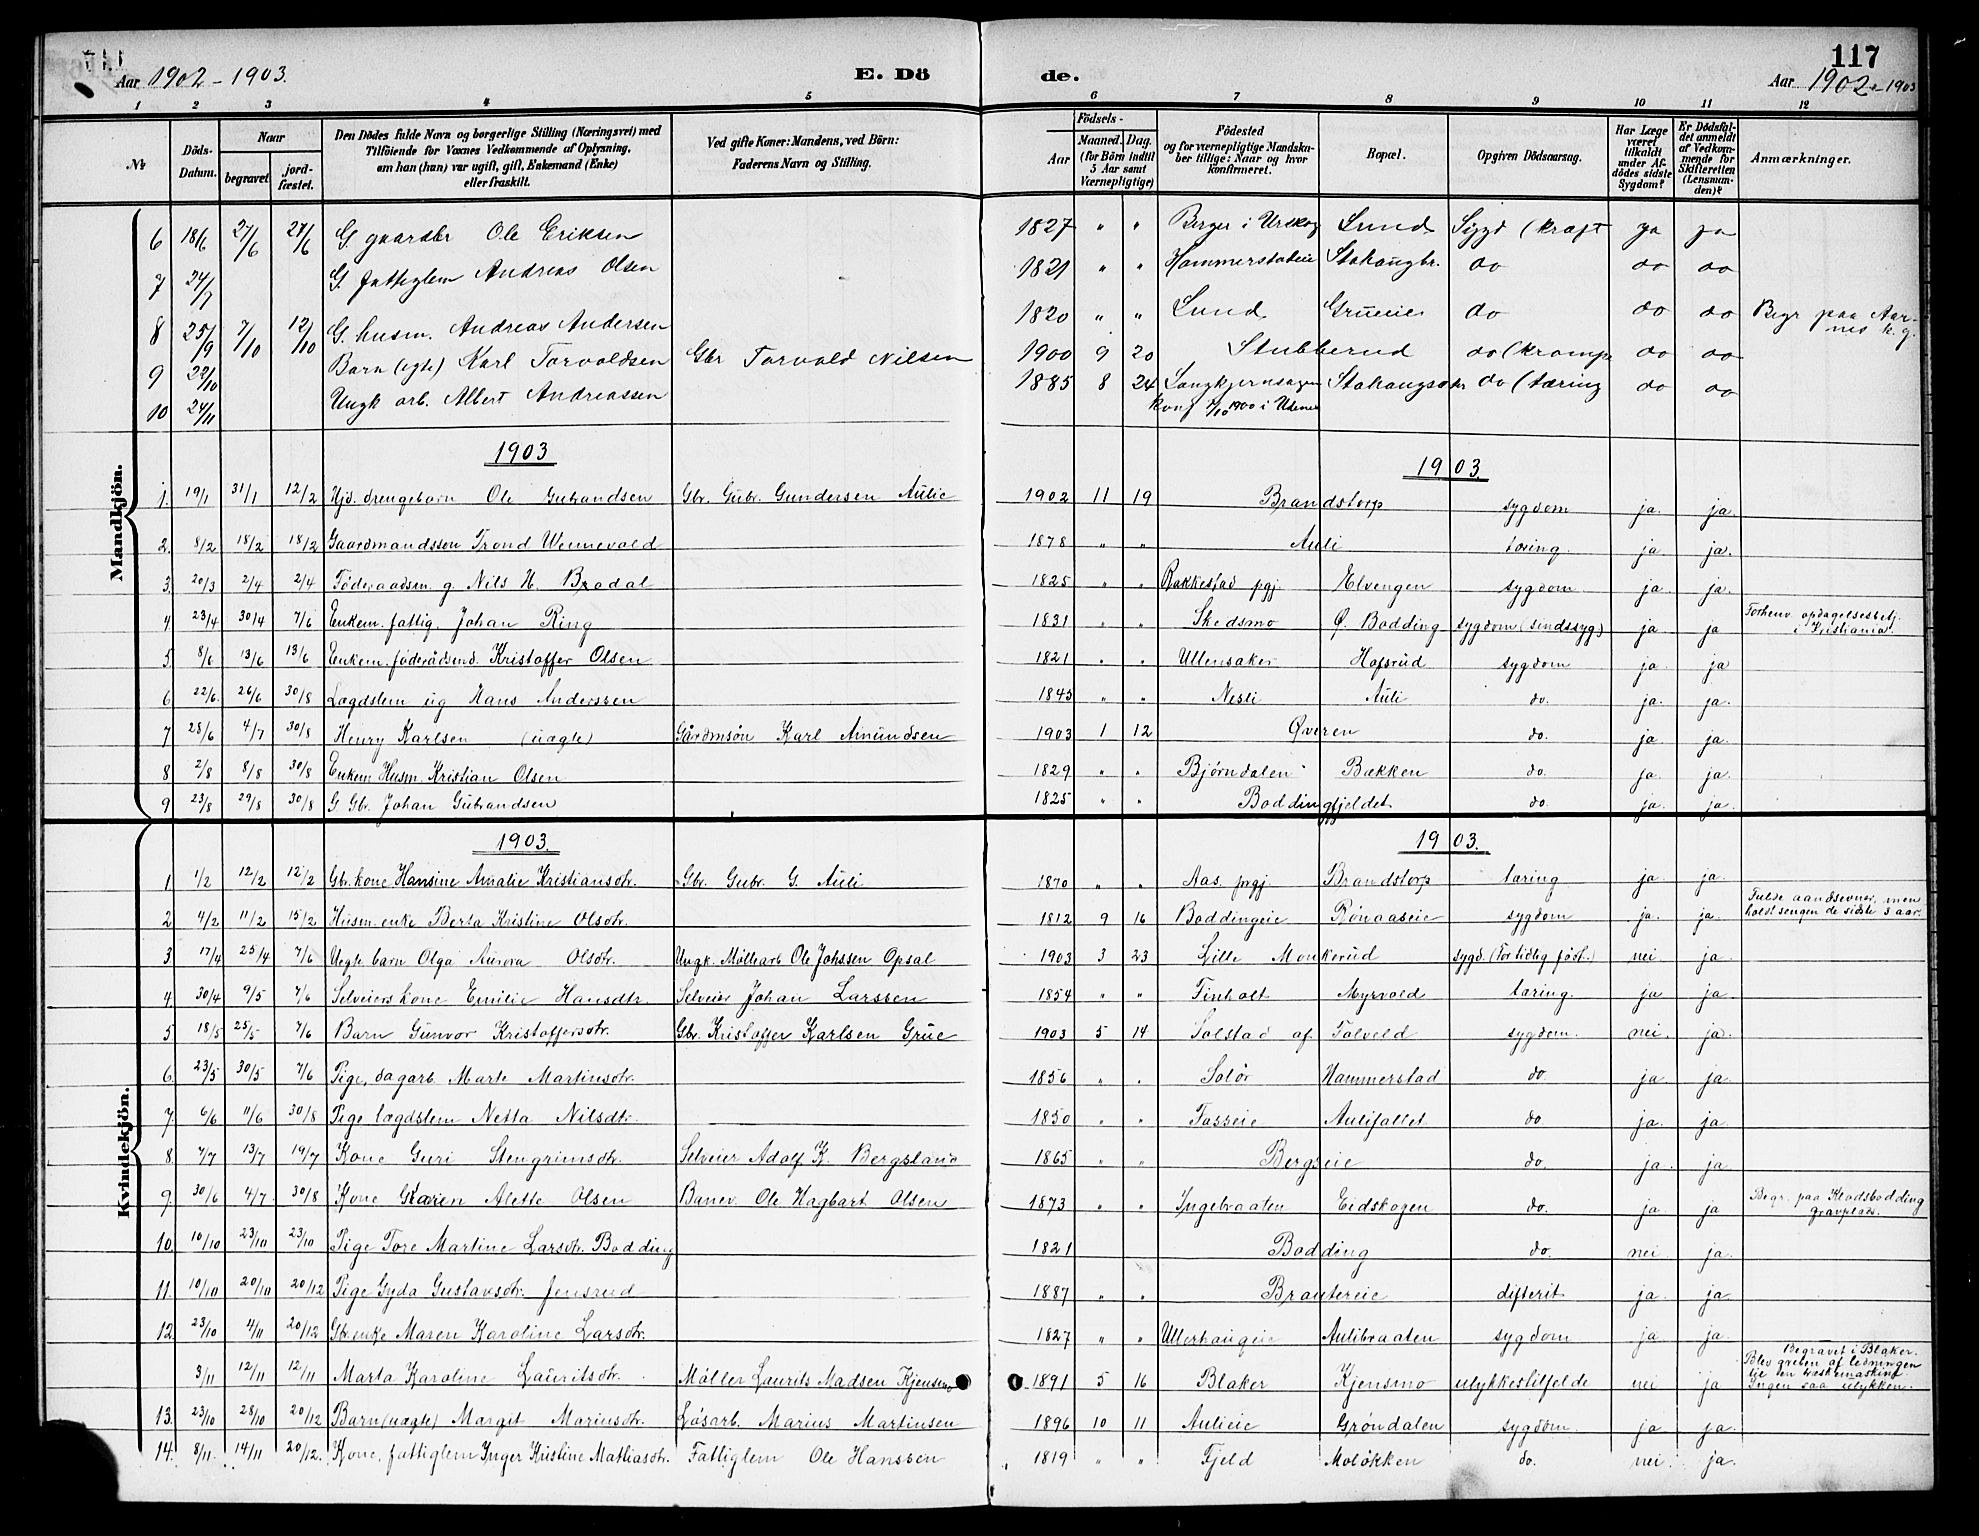 117
Aar 1902 - 1903.
E. Dö
de.
Aar 1902 - 1903
1 2 3 4 5 6 7 8 9 10 11 12
№ Döds-Datum. Naar begravet jordfæstet. Den Dödes fulde Navn og borgerlige Stilling (Næringsvei) med Tilföiende for Voxnes Vedkommende af Oplysning, om han (hun) var ugift, gift, Enkemand (Enke) eller fraskilt. Ved gifte Koner: Mandens, ved Börn: Faderens Navn og Stilling. Födsels- Aar Maaned. Dag. (for Börn indtil 5 Aar samt Værnepligtige) Födested og for værnepligtige Mandskaber tillige: Naar og hvor konfirmeret. Bopæl. Opgiven Dödsaarsag. Har Læge været tilkaldt under Afdödes sidste Sygdom? Er Dödsfaldet anmeldt af Vedkommende for Skifteretten (Lensmanden)? Anmærkninger.
Mandkjön.
6 18/6 27/6 27/6 G. gaardbr Ole Eriksen 1827 " " Berger i Urskog Lund Sygd (kræft ja ja
7 24/7 G. fattiglem Andreas Olsen 1821 " " Hammerstadeie Stahaugbr. do do do
8 25/9 7/10 12/10 G. husm. Andreas Andersen 1820 " " Lund Grueeie do do do Begr paa Aarnes k.g.
9 22/10 Barn (egte) Karl Torvaldsen Gbr Torvald Nilsen 1900 9 20 Stubberud do (kramp do do
10 24/11 Ungk arb. Albert Andreassen 1885 8 24 Stahaugs do (tæring do do
konf 7/10 1900 i Udenes
1903 1903.
1. 19/1 31/1 12/2 Hjd. drengebarn Ole Gubrandsen Gbr. Gubr. Gundersen Aulie 1902 11 19 Brandstorp sygdom ja. ja.
2. 8/2 18/2 18/2 Gaardmandssøn Trond Wennevold 1878 " " Auli tæring. ja ja.
3. 20/3 2/4 2/4 Föderaadsm. g. Nils H. Brodal 1825 " " Rakkestad pgj. Elvengen sygdom ja. ja.
4. 23/4 30/4 7/6 Enkem. fattig. Johan Ring 1831 " " Skedsmo Ø. Bodding sygdom (sindssyg) ja ja Forhenv opdagelsesbetj. i Kristiania.
5. 8/6 13/6 13/6 Enkem. föderådsmd. Kristoffer Olsen 1821 " " Ullensaker Hofsrud sygdom ja. ja
6 22/6. 26/6 30/8 Lægdslem ug Hans Anderssen 1845 " " Nesli Auli do. ja. ja.
7 28/6 4/7 30/8 Henry Karlsen (uægte) Gårdmsøn Karl Amundsen 1903 1 12 Øveren do. ja ja.
8 2/8 8/8 30/8 Enkem. Husm. Kristian Olsen 1829 " " Bjørndalen Bækken do. ja. ja.
9 23/8 29/8 30/8 G. Gbr. Johan Gubrandsen 1825 " " Boddingfjeldet do. ja. ja.
Kvindekjön.
1903. 1903.
1. 1/2 12/2 12/2 Gbr. kone Hansine Amalie Kristiansdtr. Gbr. Gubr. G. Auli 1870 " " Aas. prgj. Brandstorp tæring ja. ja.
2. 4/2 11/2 15/2 Husm. enke Berta Kristine Olsdtr. 1812 9 16 Boddingeie Rønaaseie sygdom ja. ja. Fulde aandsevner, men holdt sengen de sidste 3 aar.
3 17/4 25/4 7/6 Uegte barn Olga Aurora Olsdtr. Ungk. Møllearb Ole Johssen Opsal 1903 3 23 Lille Monkerud sygd. (For tidlig född.) nei ja
4. 30/4 9/5 7/6 Selveiers kone Emilie Hansdtr. Selveier Johan Larssen 1854 " " Finholt Myrvold tæring. ja ja.
5 18/5 25/5 7/6 Barn Gunvor Kristoffersdtr. Gbr. Kristoffer Karlsen Grue 1903 5 14 Solstad af Tolveld sygdom. nei. ja.
6. 23/5 30/5 7/6 Pige, dagarb. Marte Martinsdtr. 1856 " " Solör Hammerstad do ja ja.
7. 6/6 11/6 30/8 Pige lægdslem Netta Nilsdtr. 1850 " " Fosseie Aulifallet do ja ja.
8 7/7 13/7 19/7 Kone Guri Stengrimsdtr. Selveier Adolf K. Bergsland 1865 " " Bergseie do. ja. ja.
9. 30/6 4/7. 30/8 Kone Karen Alette Olsen Banev. Ole Hagbart Olsen 1873 " " Ingebraaten Eidskogen do. ja ja Begr. paa Klodsbodding gravplads.
10. 10/10 23/10 23/10 Pige Tore Martine Larsdtr. Bodding 1821 Bodding do. nei ja.
11. 10/10 20/10 20/12 Pige Gyda Gustavsdtr. Jensrud 1887 " " Brautereie difterit ja. ja.
12. 23/10 4/11 20/12 Gbr. enke Maren Karoline Larsdtr. 1827 " " Ullerhaugeie Aulibraaten sygdom ja ja.
3/11 12/11 12/11 Marta Karoline Lauritsdtr. Møller Laurits Madsen Kjensmo 1891 5 16 Blaker Kjensmo ulykkestilfelde nei ja Begravet i Blaker. Blev greben af ledningen til en tærskemaskine. Ingen saa ulykken.
13. 23/10 28/10 20/12 Barn (uægte) Margit Marinsdtr. Løsarb. Marius Martinsen 1896 10 11 Aulieie Grøndalen sygdom. ja ja.
14. 8/11. 14/11 20/12. Kone. fattiglem Inger Kristine Mathiasdtr. Fattiglem Ole Hanssen 1819 " " Fjeld Moløkken do. nei. ja.